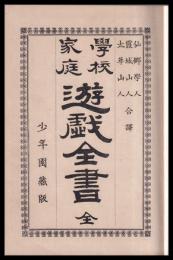 仙鄉學人
霞城山人 合譯
太華山人
學校
家庭
遊戲全書 全
少年園藏版